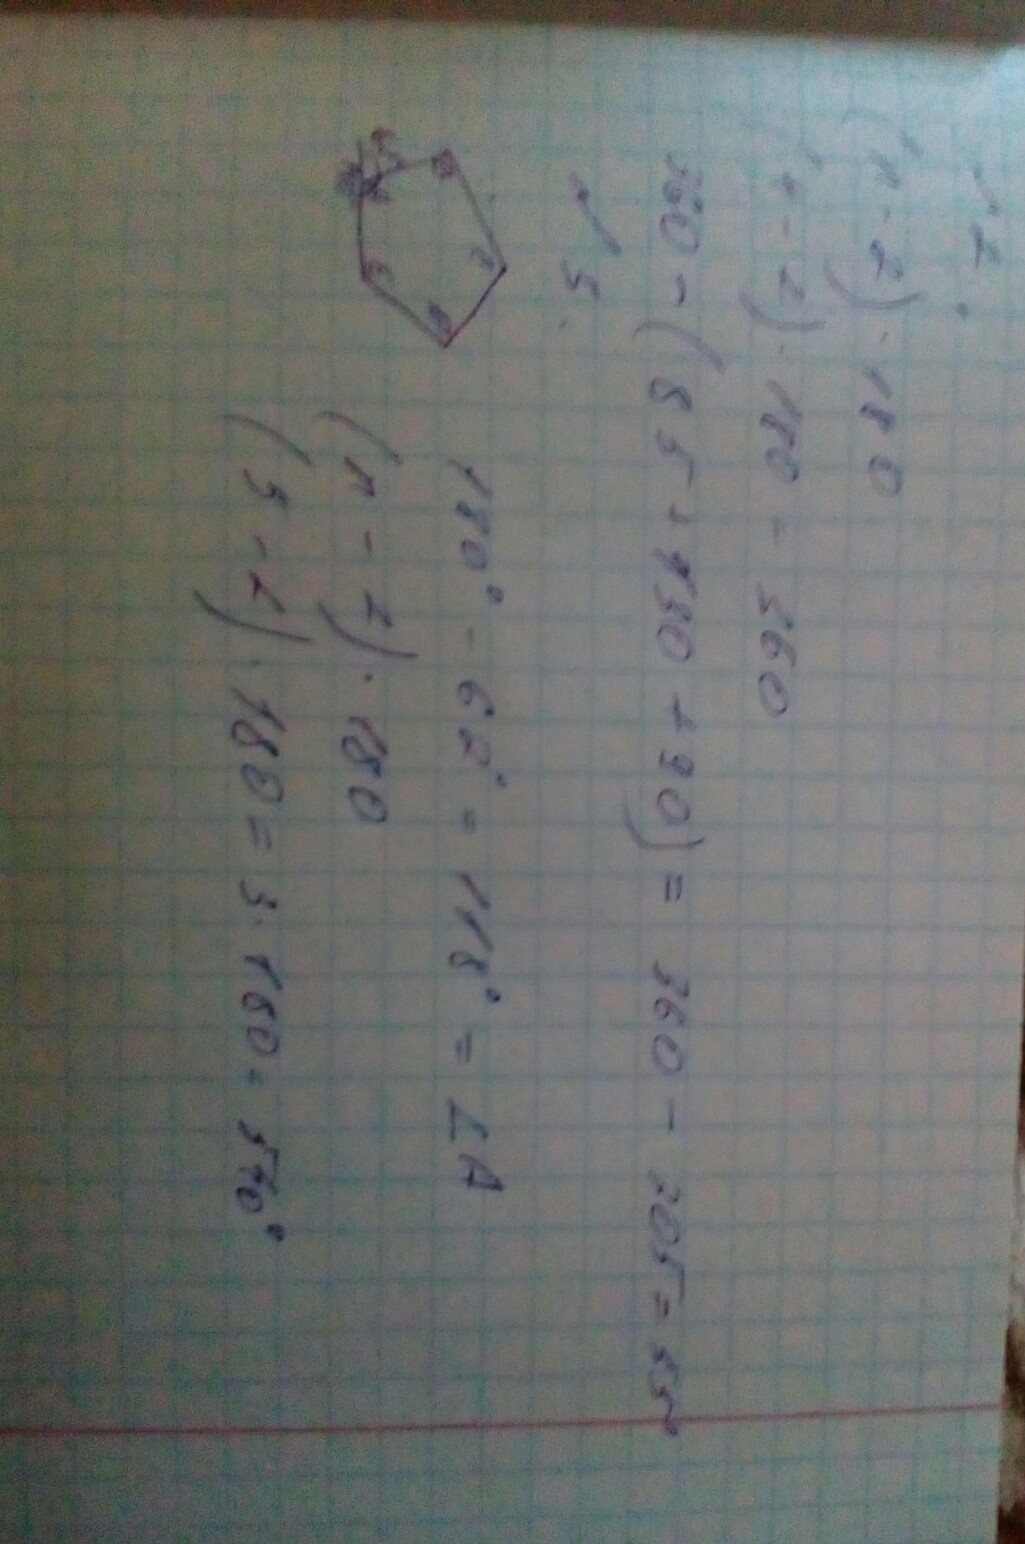 №2.
(n-2)·180
(4-2)·180=360
360-(85+130+90)=360-205=55°
№3.
180°-62°=118°=∠A
(n-2)·180
(5-2)·180=3·180=540°